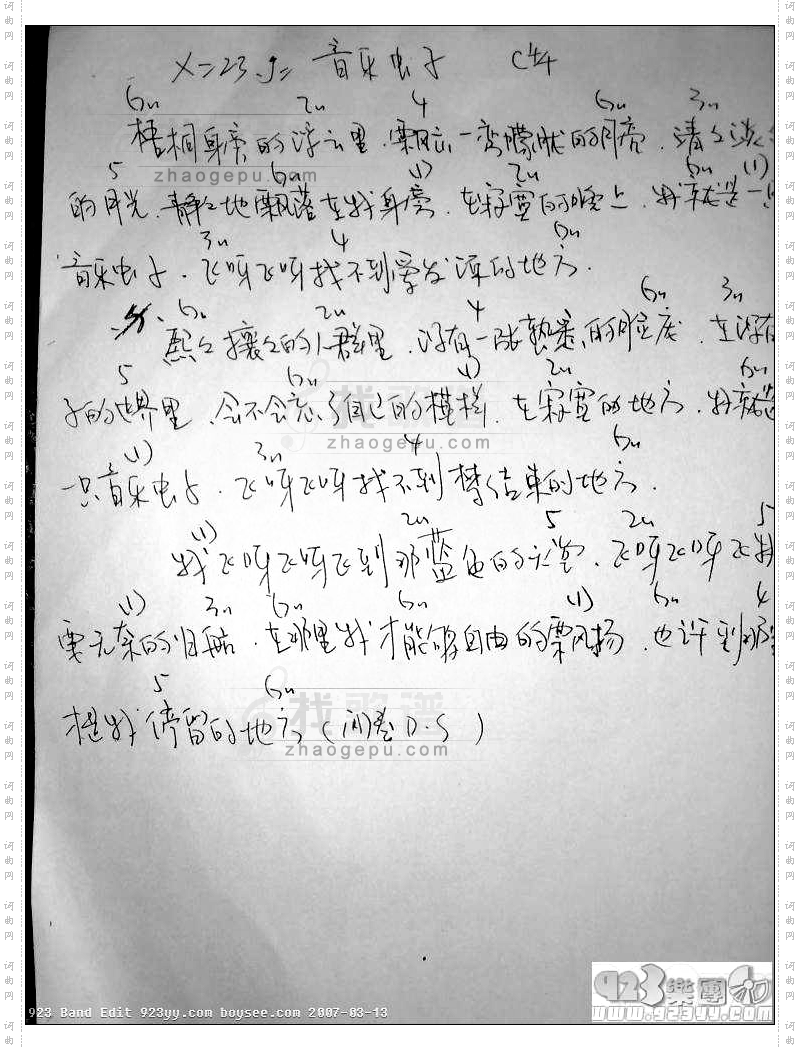 音乐虫子 C 4/4
6m 2m 4 6m 3m
的浮云里，飘 一弯朦胧的月亮，清
5 6m (1) 2m 6m (1)
的月光，静々地飘落在我身旁，在寂寞的晚上，我就是一只
3m 4 6m
音乐虫子，飞呀飞呀找不到爱发源的地方.
6m 2m 4 6m 3m
熙々攘々的人群里，没有一张熟悉的 ，在没有
5 6m (1) 2m 6m
子的世界里，会不会忘了自己的模样，在寂寞的地方，我就是
(1) 3m 4 6m
一只音乐虫子，飞呀飞呀找不到梦结束的地方.
(1) 2m 5 2m 5
我飞呀飞呀飞到那蓝色的天堂，飞呀飞呀飞
(1) 3m 6m 6m (1) 6m 4
要无奈的归航，在那里我才能够自由的飘扬，也许到那里
5 6m
才是我停留的地方（间奏D.S）
找歌谱
zhaogepu.com
找歌谱
zhaogepu.com
找歌谱
zhaogepu.com
923樂團
www.923yy.com
923 Band Edit 923yy.com boysee.com 2007-03-13
词曲网